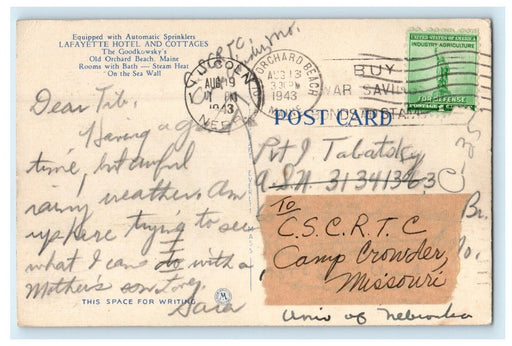 Equipped with Automatic Sprinklers
LAFAYETTE HOTEL AND COTTAGES
The Goodkowsky's
Old Orchard Beach, Maine
Rooms with Bath — Steam Heat
"On the Sea Wall
LINCOLN
AUG 19
1943
NEB
ORCHARD BEACH
AUG 13
3 30PM
1943
MAINE
BUY
WAR SAVINGS
BONDS AND STAMPS
UNITED STATES OF AMERICA
INDUSTRY AGRICULTURE
FOR DEFENSE
POST CARD
Dear Tib,
Having a good
time, but awful
rainy weather. Am
up here trying to see
what I can do with a
Mothers son
Sara
THIS SPACE FOR WRITING
Pvt J. Tabatsky
A.S.N. 31341363
To
C.S.C.R.T.C
Camp Crowder,
Missouri
Br.
Mo.
Univ of Nebraska